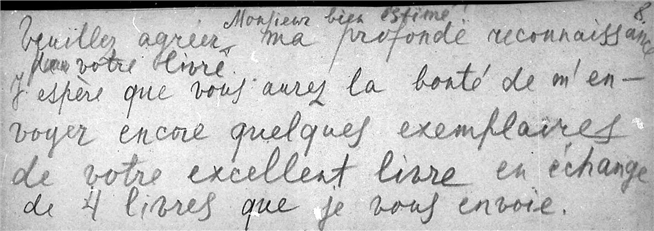 8.
Monsieur bien estimé!
Veuillez agréer ma profonde reconnaissance
pour votre livre.
J'espère que vous aurez la bonté de m'en-
voyer encore quelques exemplaires
de votre excellent livre en échange
de 4 livres que je vous envoie.